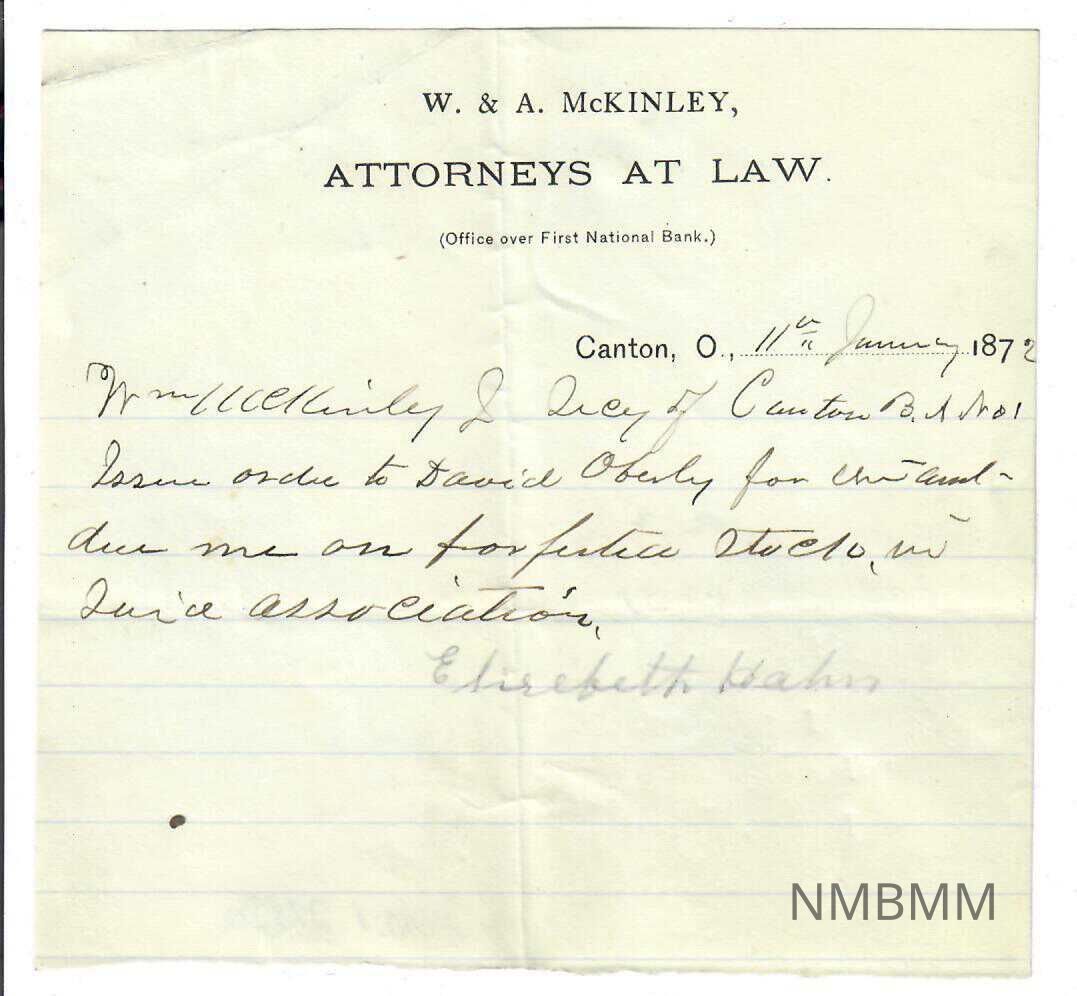 W. & A. McKINLEY,
ATTORNEYS AT LAW.
(Office over First National Bank.)
Canton, O., 11th January 1872
Wm McKinley Jr Secy of Canton B. A No 1
Issue order to David Oberly for the amt
due me on forfeited Stock, in
Said association,
Elizebeth Hahn
NMBMM